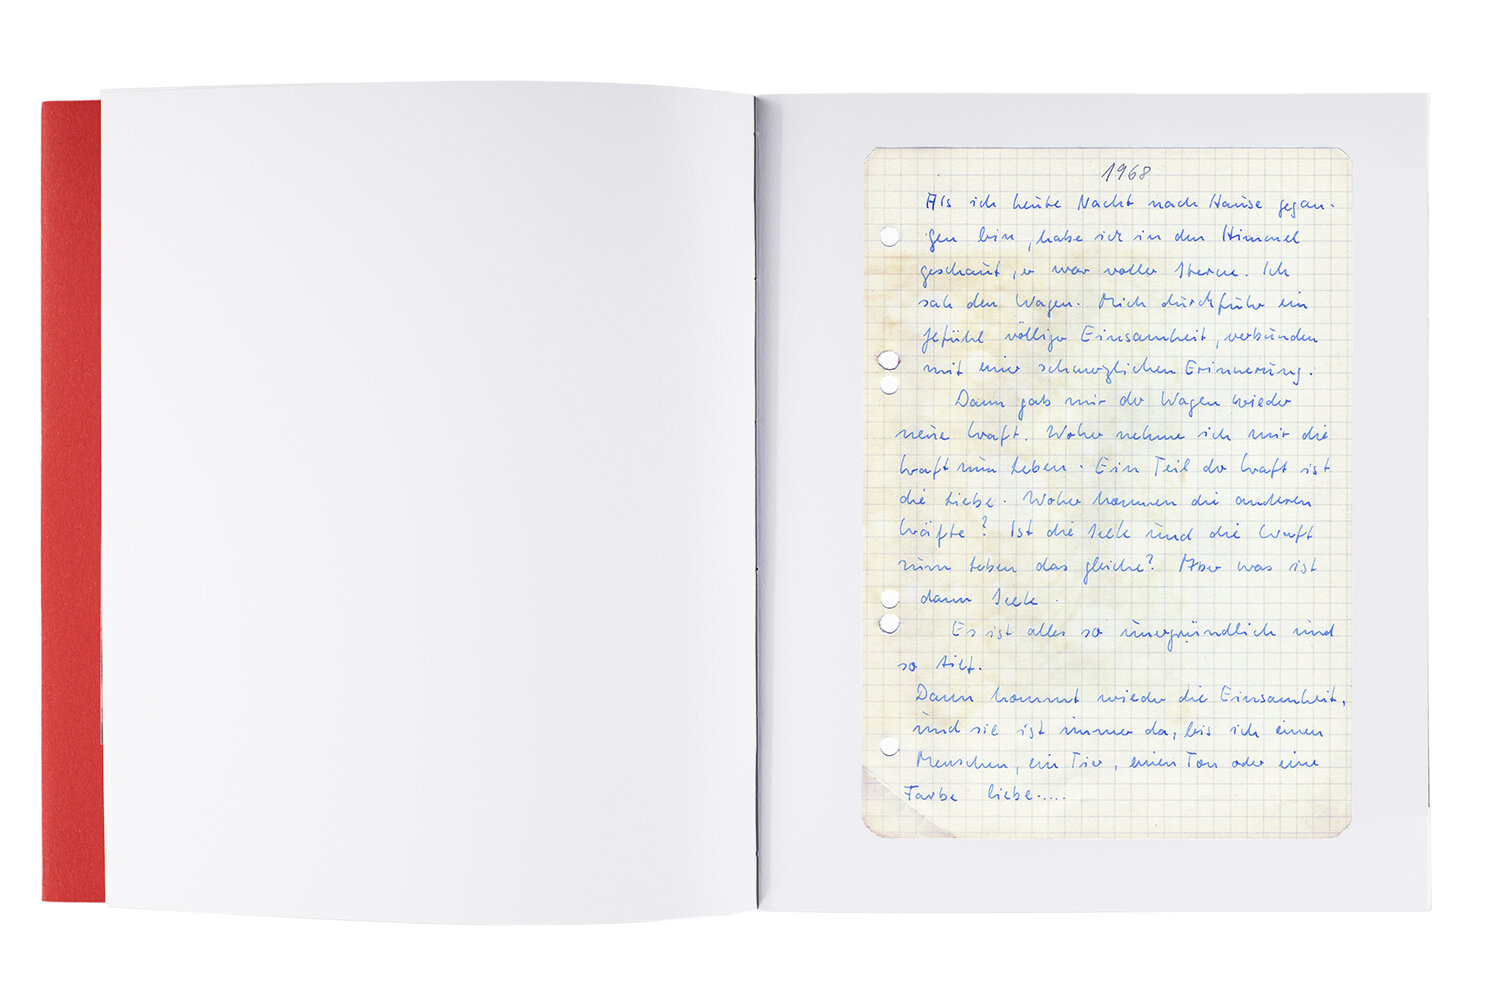 1968
Als ich heute Nacht nach Hause gegan-
gen bin, habe ich in den Himmel
geschaut, er war voller Sterne. Ich
sah den Wagen. Mich durchfuhr ein
Gefühl völliger Einsamheit, verbunden
mit einer schmerzlichen Erinnerung.
Dann gab mir der Wagen wieder
neue Kraft. Woher nehme ich mir die
Kraft zum Leben. Ein Teil der Kraft ist
die Liebe. Woher kommen die anderen
Kräfte? Ist die Seele und die Kraft
zum Leben das gleiche? Aber was ist
dann Seele.
Es ist alles so unergründlich und
so tief.
Dann kommt wieder die Einsamheit,
und sie ist immer da, bis ich einen
Menschen, ein Tier, einen Ton oder eine
Farbe liebe.....